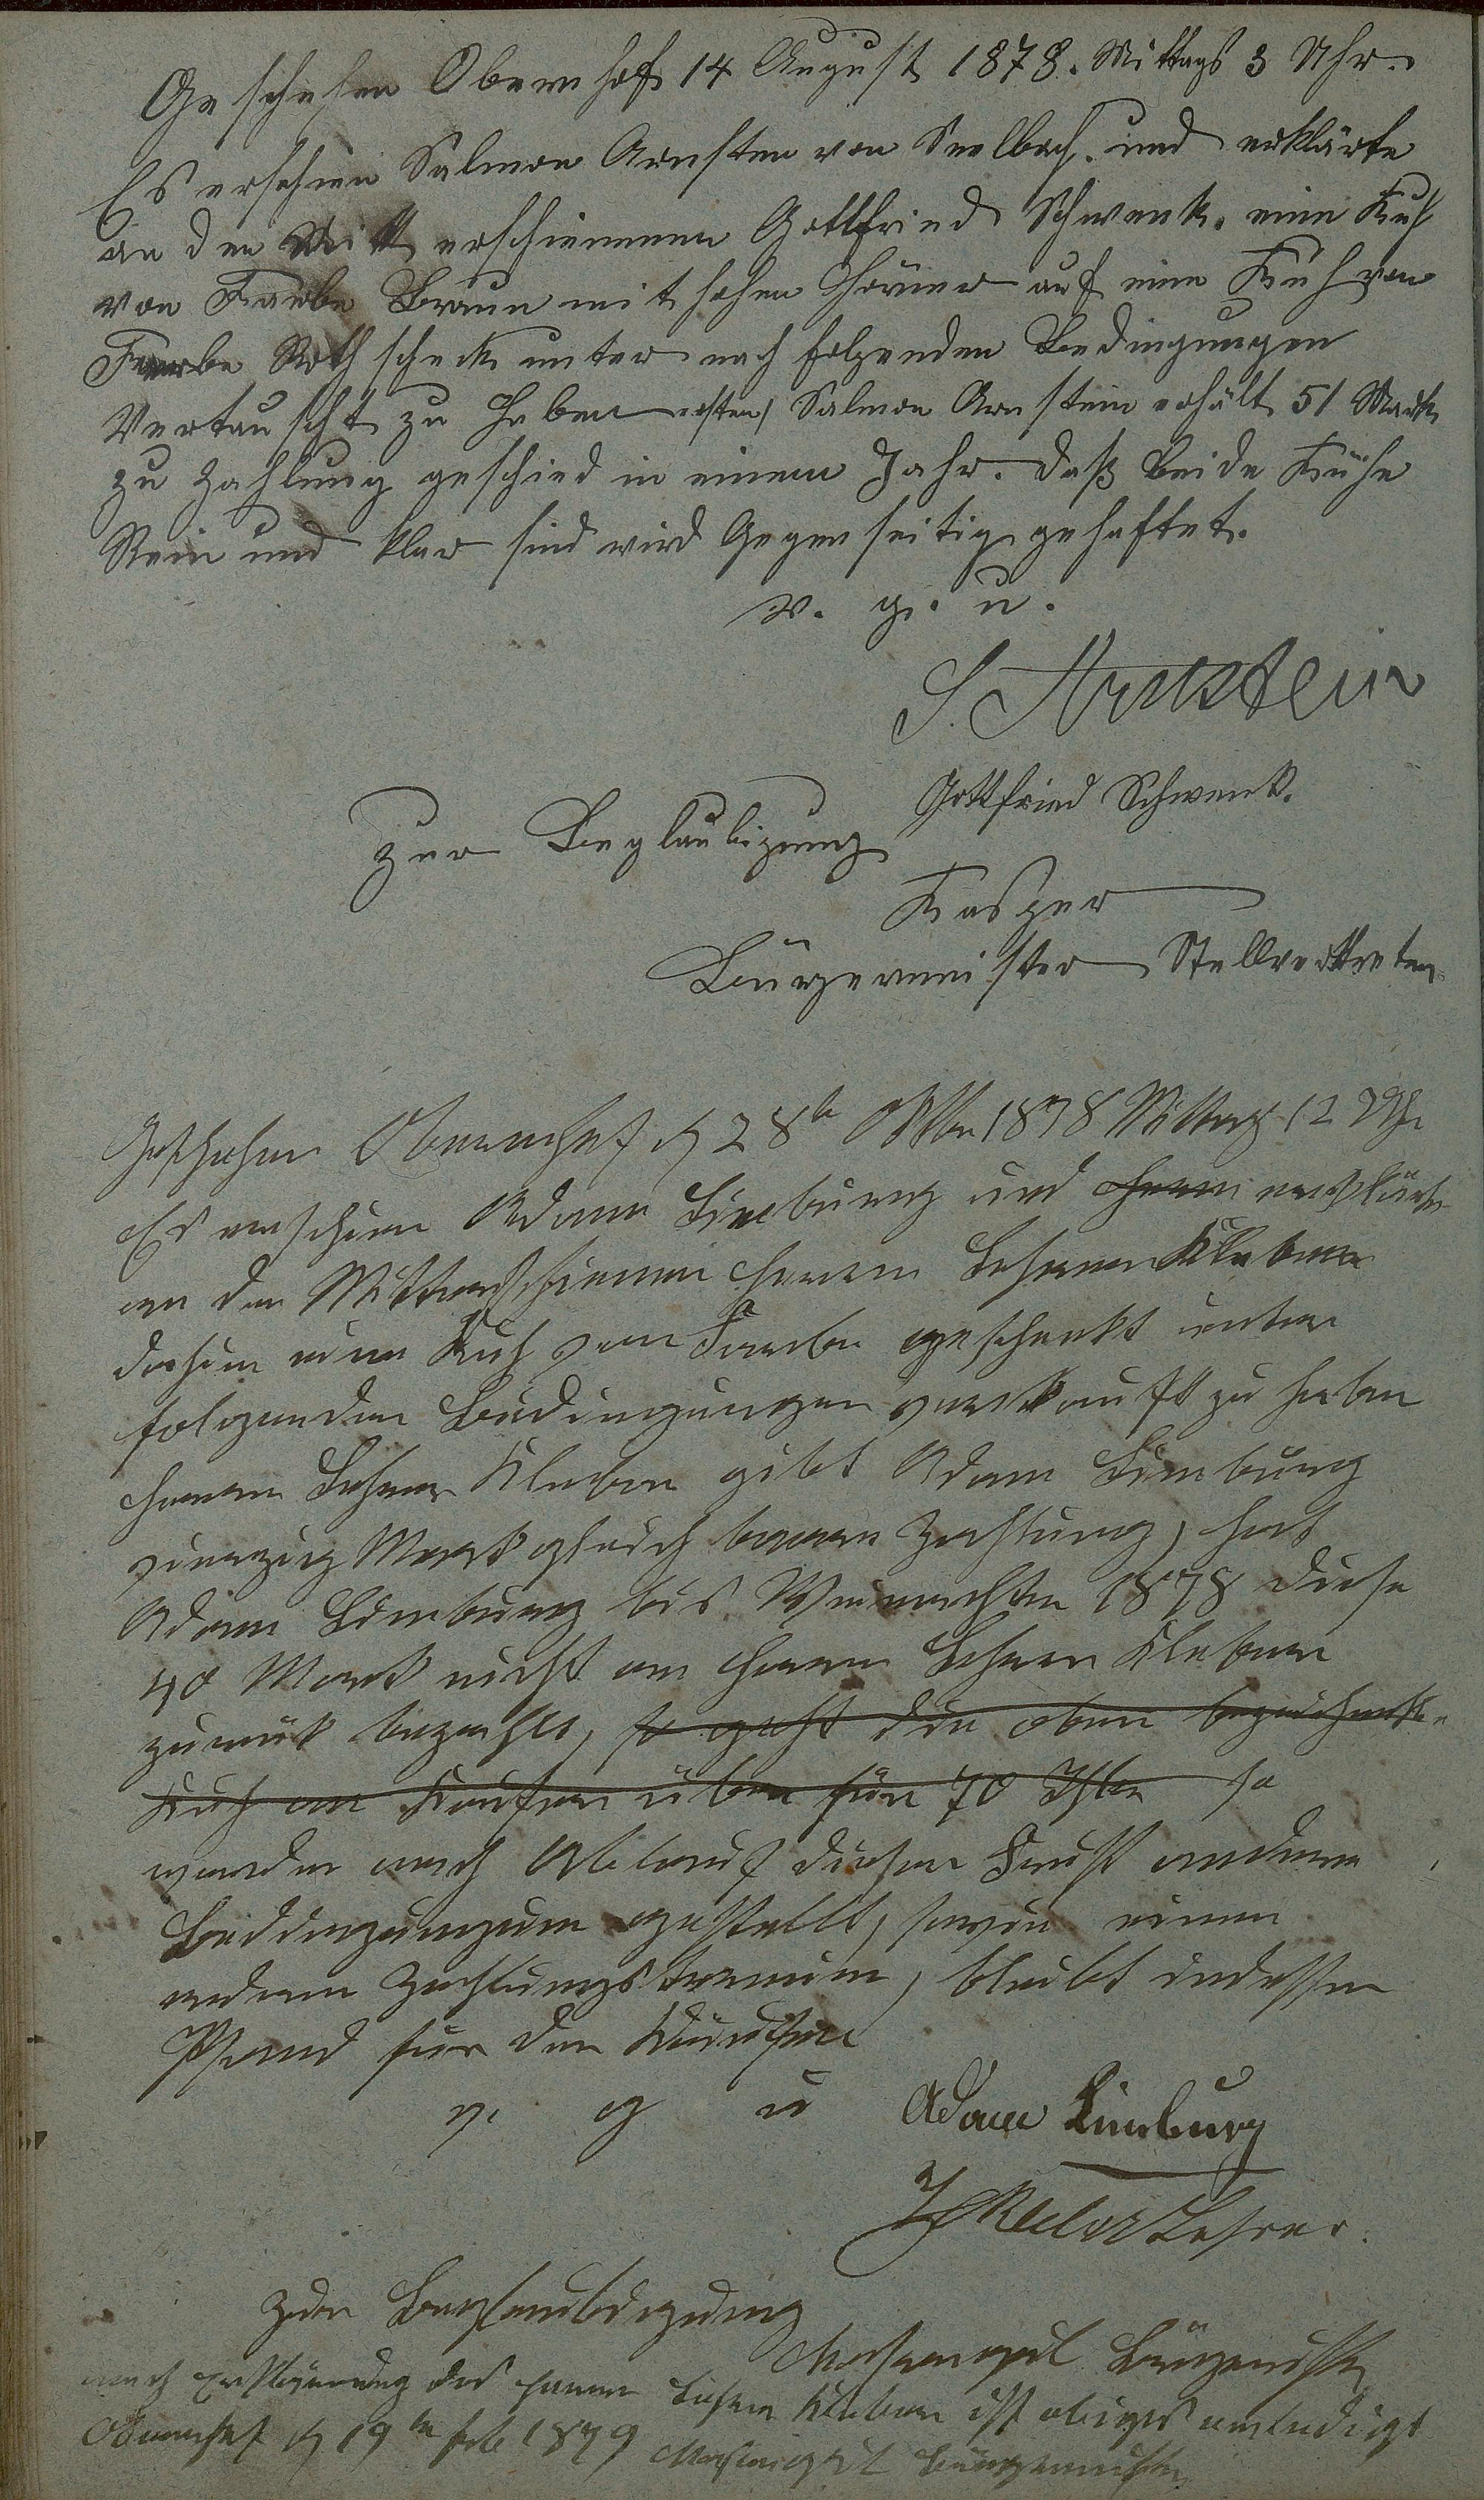 Geschehen Obernhof 14 August 1878. Mittags 3 Uhr.
Es erschien Salmon Arnsten von Seelbach. und erklärte
an den Mitt erschiennen Gottfried Schwenk. eine Kuh
von Farbe Braun mit hohen Hörner auf eine Kuh von
Farbe Roth scheck unter nach folgenden Bedingungen
Vertauscht zu Haben ersten) Salmon Arnstein erhält 51 Mark
zu Zahlung geschied in einem Jahr. daß beide Kühe
Rein und klar sind wird Gegenseitig gehaftet.
v. g. u.
S. Arnstein
Gottfried Schwenk.
Zur Beglaubigung
Kasper
Bürgermeister Stellvertreter
Geschehen Obernhof d 28te Oktbr 1878 Mittag 12 Uhr
Es erschien Adam Limburg und Herrn erklärte
an den Mitterschiennen Herrn Lehrer Kleber
dahier eine Kuh von Farbe gescheckt unter
folgenden Bedingungen verkauft zu haben
Herrn Lehrer Kleber gibt Adam Limburg
vierzig Mark gleich baare Zahlung, hat
Adam Limburg bis Weinachten 1878 diese
40 Mark nicht an Herrn Lehrer Kleber
zurück bezahlt, so geht die oben bezeichnete
Kuh an Käufer über für 70 Thlr so
werden nach Ablauf dieser Frist andere
Beddingungen gestellt, sowie einen
andern Zahlungstermin, bleibt indessen
Pfand für den Käufer
v. g u
Adam Limburg
Kleber Lehrer.
Zur Beglaubigung
Bürgermstr
nach Erklärung des Herrn Lehrer Kleber ist obiges erledigt
Obernhof d 19ten Feb 1879 Bürgermeister